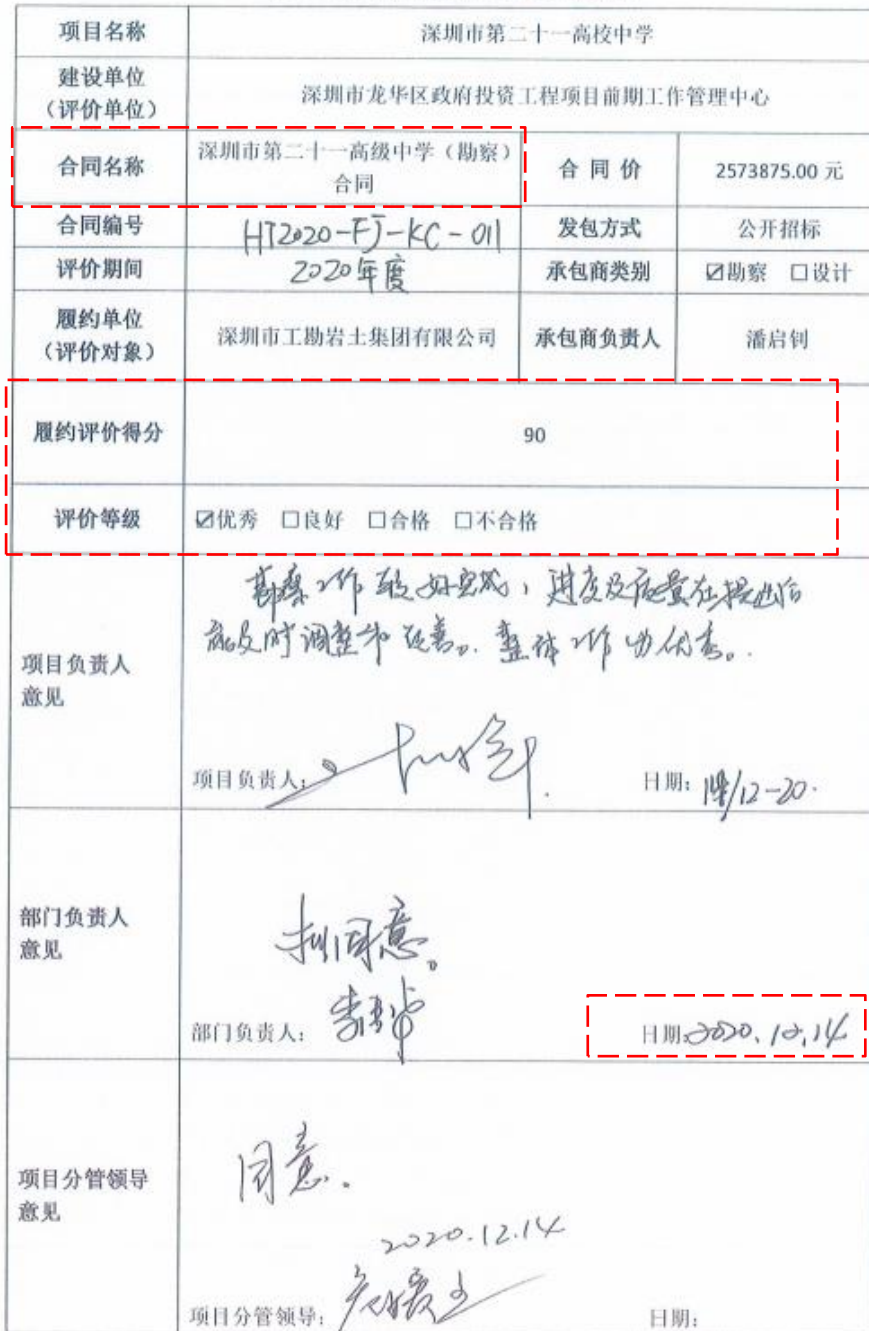 项目名称 深圳市第二十一高校中学
建设单位
（评价单位） 深圳市龙华区政府投资工程项目前期工作管理中心
合同名称 深圳市第二十一高级中学（勘察）
合同 合同价 2573875.00 元
合同编号 HT2020-FJ-KC-011 发包方式 公开招标
评价期间 2020年度 承包商类别 ☑勘察 ☐设计
履约单位
（评价对象） 深圳市工勘岩土集团有限公司 承包商负责人 潘启钊
履约评价得分 90
评价等级 ☑优秀 ☐良好 ☐合格 ☐不合格
勘察工作较好完成，进度及质量在提出后
能及时调整和改善。整体工作为优秀。
项目负责人
意见
项目负责人： 日期：14/12-20.
部门负责人
意见
拟同意。
部门负责人： 日期：2020.12.14
项目分管领导
意见
同意.
2020.12.14
项目分管领导： 日期：